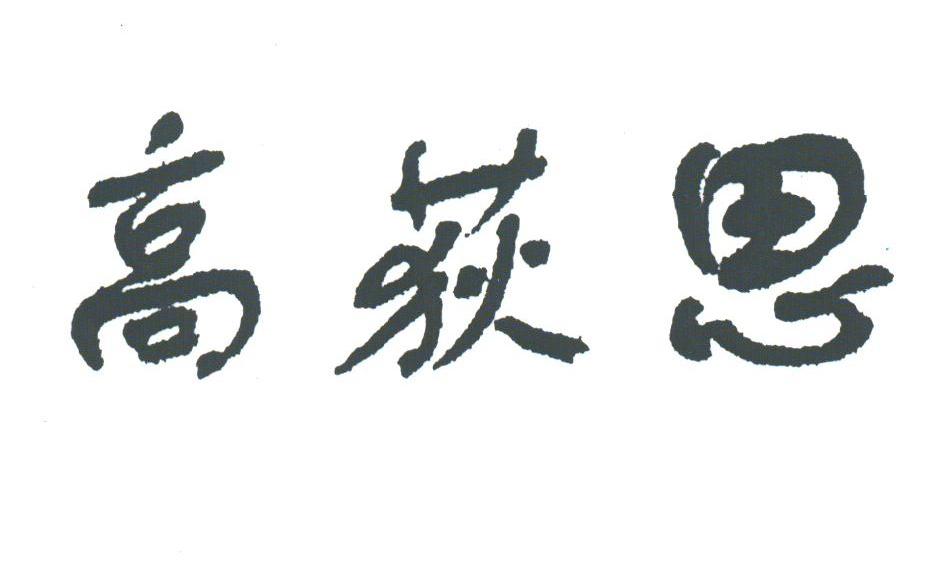 高荻思